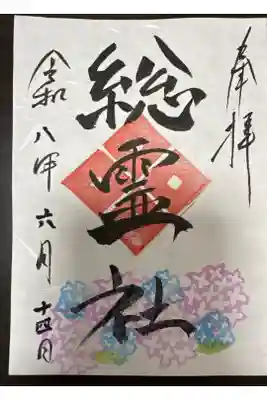 奉拝
総霊社
令和八年六月十四日